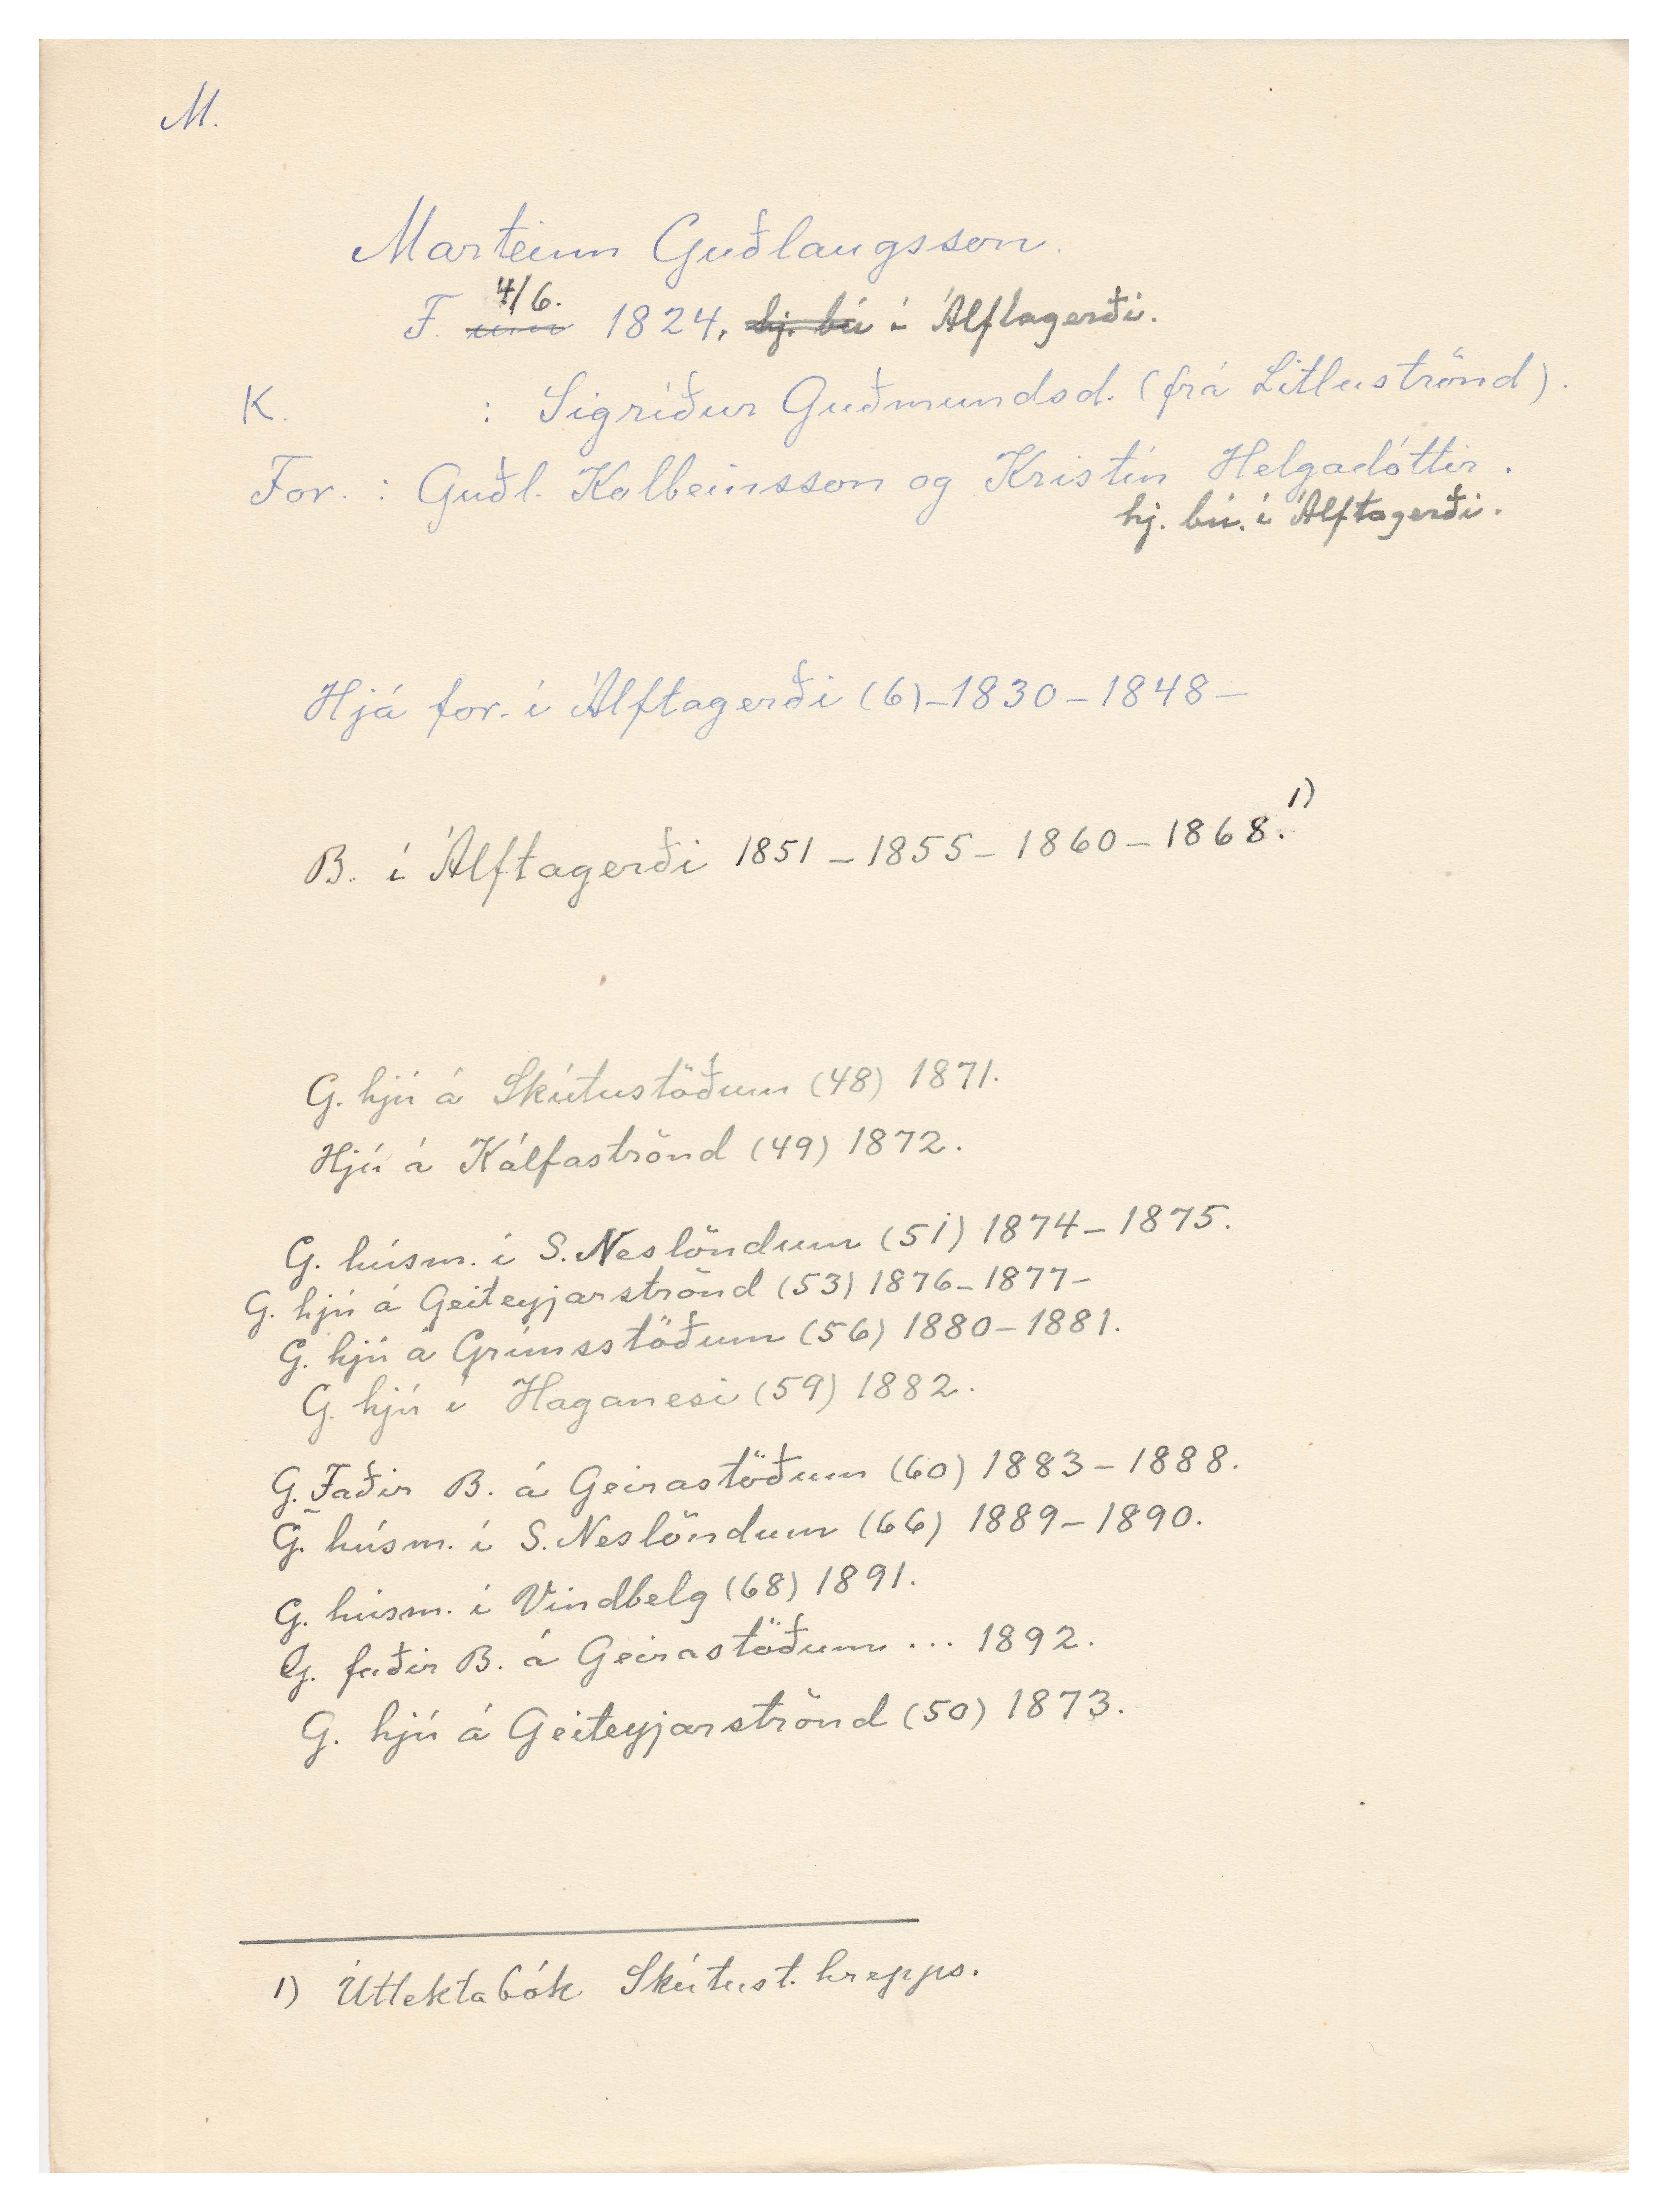 M.
Marteinn Guðlaugsson.
4/6.
F. um 1824, hj. bú í Álftagerði.
K. : Sigríður Guðmundsd. (frá Litluströnd).
For. : Guðl. Kolbeinsson og Kristín Helgadóttir.
hj. bú. í Álftagerði.
Hjá for. í Álftagerði (6)-1830-1848-
B. í Álftagerði 1851-1855-1860-1868. 1)
G. hjú á Skútustöðum (48) 1871.
Hjú á Kálfaströnd (49) 1872.
G. húsm. í S. Neslöndum (51) 1874-1875.
G. hjú á Geiteyjarströnd (53) 1876-1877-
G. hjú á Grímsstöðum (56) 1880-1881.
G. hjú í Haganesi (59) 1882.
G. Faðir B. á Geirastöðum (60) 1883-1888.
G. húsm. í S. Neslöndum (66) 1889-1890.
G. húsm. í Vindbelg (68) 1891.
G. faðir B. á Geirastöðum ... 1892.
G. hjú á Geiteyjarströnd (50) 1873.
1) Úttektabók Skútust. hrepps.